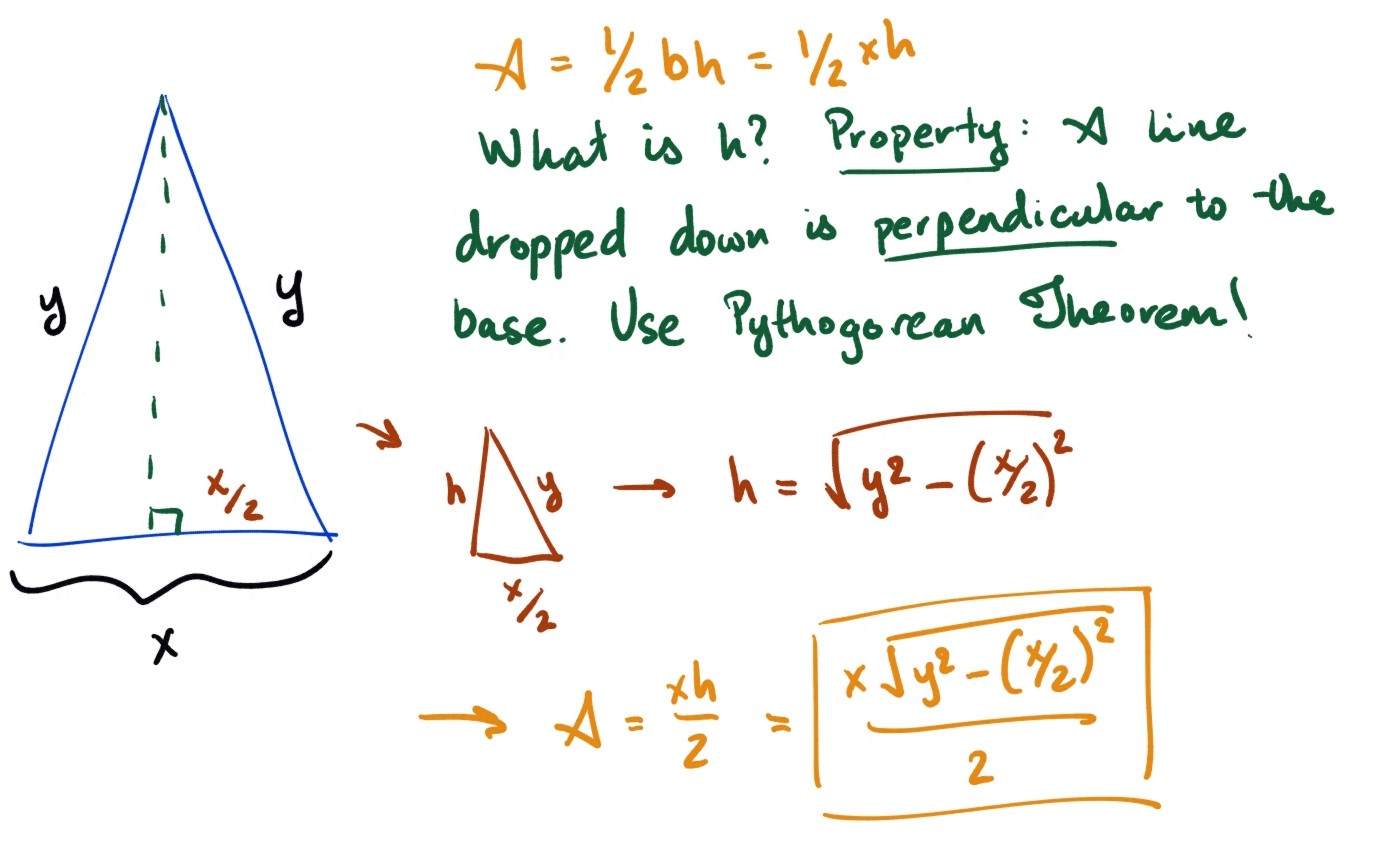 A = 1/2 bh = 1/2 xh
What is h? Property: A line
dropped down is perpendicular to the
base. Use Pythogorean Theorem!
y
y
x/2
x
h
y
x/2
→ h = √(y² - (x/2)²)
→ A = xh/2 = x√(y² - (x/2)²)/2